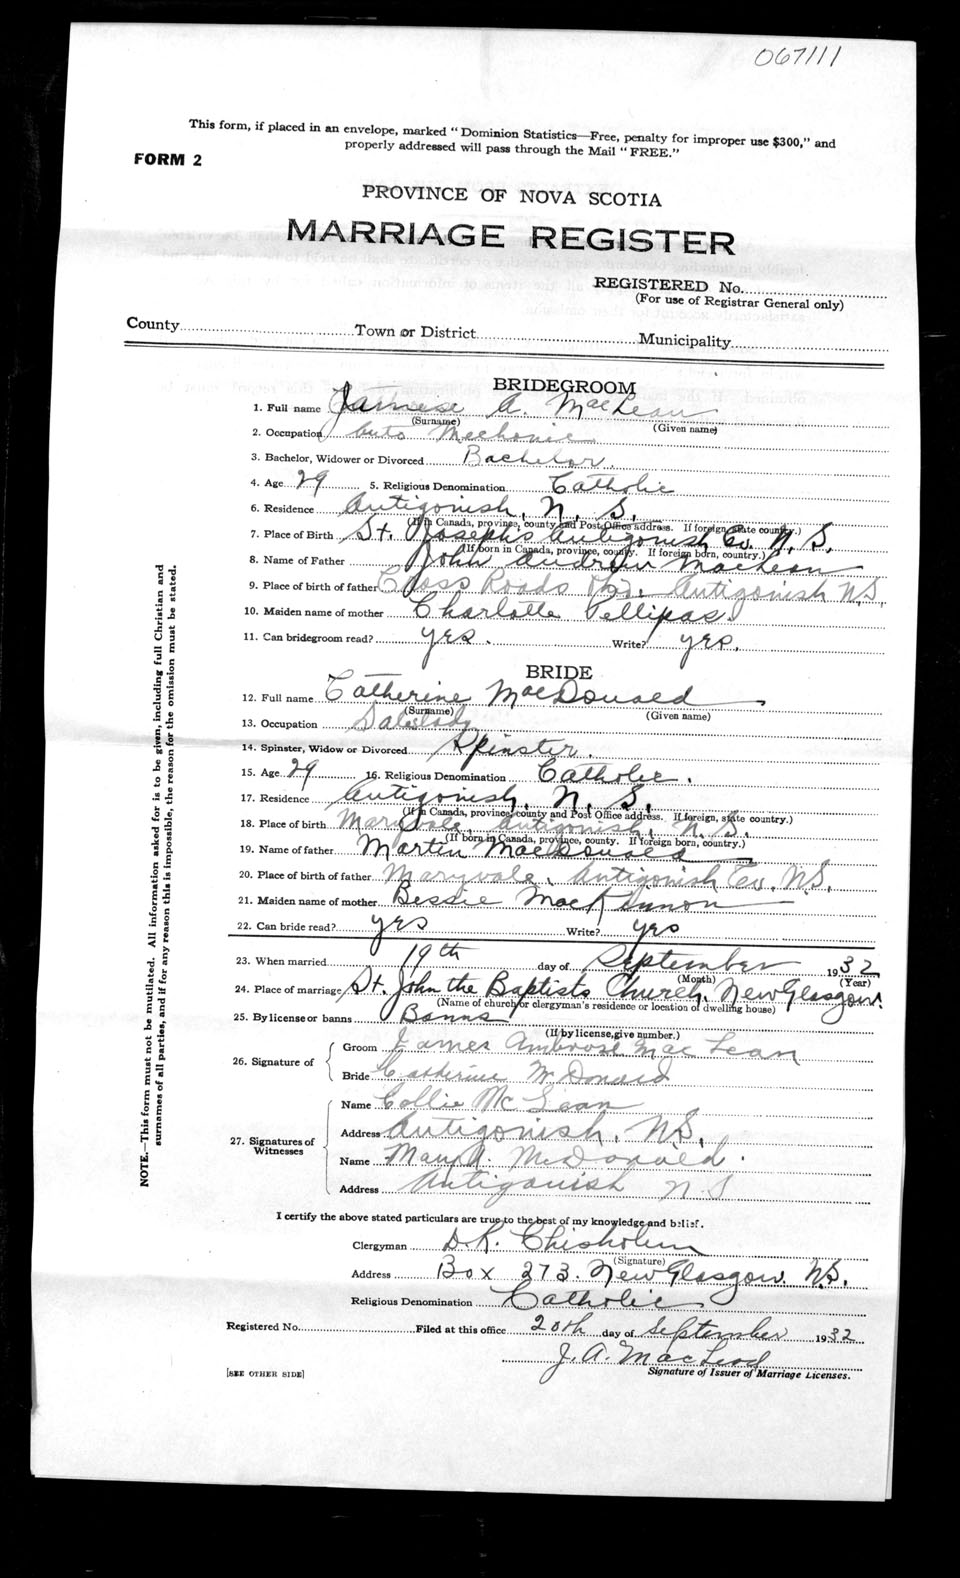 067111
This form, if placed in an envelope, marked "Dominion Statistics—Free, penalty for improper use $300," and
properly addressed will pass through the Mail "FREE."
FORM 2
PROVINCE OF NOVA SCOTIA
MARRIAGE REGISTER
REGISTERED No.
(For use of Registrar General only)
County Town or District Municipality
BRIDEGROOM
1. Full name A. MacLean
(Surname) (Given name)
2. Occupation Auto Mechanic
3. Bachelor, Widower or Divorced Bachelor.
4. Age 29 5. Religious Denomination Catholic
6. Residence Antigonish, N. S.
(If in Canada, province, county and Post Office address. If foreign, state country.)
7. Place of Birth St. Joseph's Antigonish Co. N. S.
(If born in Canada, province, county. If foreign born, country.)
8. Name of Father John Andrew MacLean
9. Place of birth of father Cross Roads Antigonish N.S.
10. Maiden name of mother Charlotte Pellipas.
11. Can bridegroom read? yes. Write? yes.
BRIDE
12. Full name Catherine MacDonald
(Surname) (Given name)
13. Occupation Saleslady
14. Spinster, Widow or Divorced Spinster.
15. Age 29 16. Religious Denomination Catholic.
17. Residence Antigonish, N. S.
(If in Canada, province, county and Post Office address. If foreign, state country.)
18. Place of birth Maryvale, Antigonish, N. S.
(If born in Canada, province, county. If foreign born, country.)
19. Name of father Martin MacDonald
20. Place of birth of father Maryvale, Antigonish Co. N.S.
21. Maiden name of mother Bessie MacKinnon
22. Can bride read? yes Write? yes
23. When married 19th day of September 1932
(Month) (Year)
24. Place of marriage St. John the Baptists Church, New Glasgow.
(Name of church or clergyman's residence or location of dwelling house)
25. By license or banns Banns
(If by license, give number.)
26. Signature of
Groom James Ambrose MacLean
Bride Catherine McDonald
27. Signatures of Witnesses
Name Collie McLean
Address Antigonish, N.S.
Name Mary A. McDonald.
Address Antigonish N.S
I certify the above stated particulars are true to the best of my knowledge and belief.
Clergyman D.K. Chisholm
(Signature)
Address Box 273. New Glasgow. N.S.
Religious Denomination Catholic
Registered No. Filed at this office 20th day of September 1932
J. A. MacLeod
[SEE OTHER SIDE] Signature of Issuer of Marriage Licenses.
NOTE.—This form must not be mutilated. All information asked for is to be given, including full Christian and
surnames of all parties, and if for any reason this is impossible, the reason for the omission must be stated.